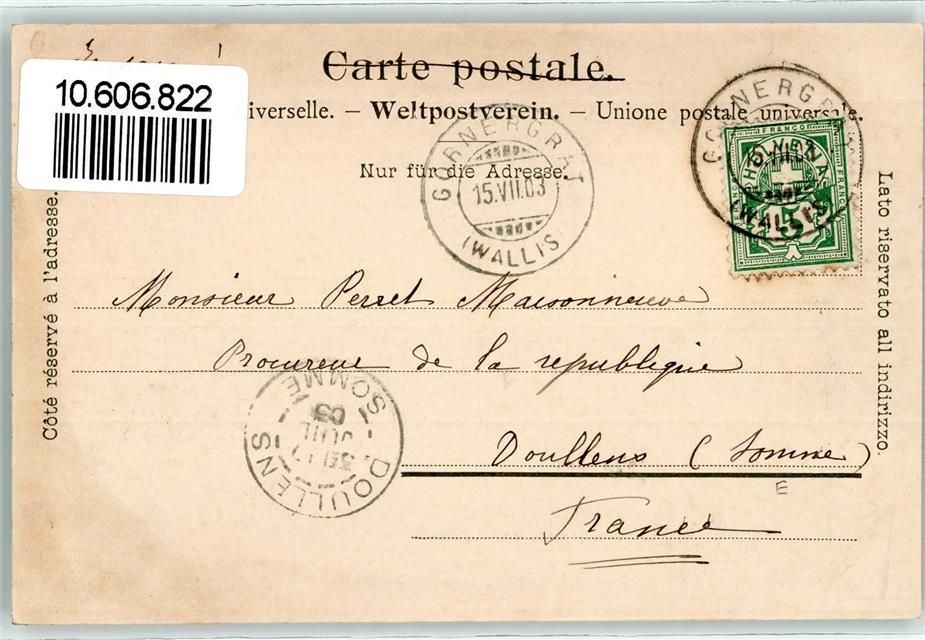 Carte postale.
10.606.822
iverselle. – Weltpostverein. – Unione postale universale.
Nur für die Adresse.
GORNERGRAT
15.VII.03
(WALLIS)
GORNERGRAT
(WALLIS)
FRANCO
HELVETIA
FRANCO
5
Côté réservé à l'adresse.
Lato riservato all indirizzo.
Monsieur Perret Maisonneuve
Procureur de la republique
Doullens (Somme)
E
France
DOULLENS
JUIL
03
SOMME